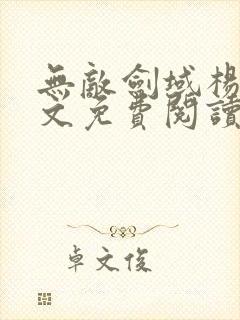 無敵劍域楊
文免費閱讀
卓文俊